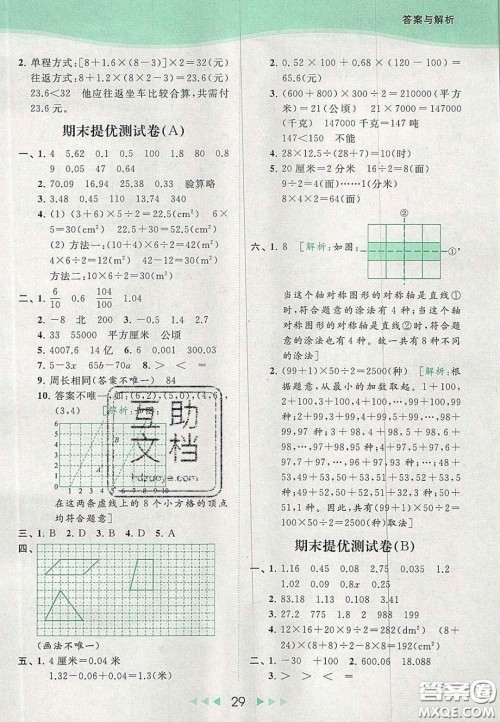 答案与解析
2. 单程方式:[8+1.6×(8-3)]×2=32(元)
往返方式:8+1.2×(8×2-3)=23.6(元)
23.6<32 他应往返坐车比较合算,共需付
23.6元。
期末提优测试卷(A)
一、1. 4 5.62 0.1 0.5 100 1.8 80 0.8
9 0.05 47 0.64
2. 70.09 16.96 15.38 0.55 验算略
3. 3.48 0.45 10.4 340
4. (1) (3+6)×5÷2=22.5(cm²) 6×
5=30(cm²) 22.5+30=52.5(cm²)
(2) 方法一:(10-4)×6÷2=18(cm²)
4×6÷2=12(cm²) 18+12=30(cm²)
方法二:10×6÷2=30(cm²)
二、1. 6/10 0.6 104/100 1.04
2. -8 北 200 3. 0.02 0.2
4. 33 55000 平方厘米 公顷
5. 4007.6 14亿 6. 6.6 0.001
7. 5-3x 65b-70a 8. > < = <
9. 周长相同(答案不唯一) 84
10. 答案不唯一,如:(6,2),(5,0),
(3,4) [解析:如图:
在这两条虚线上的8个小方格的顶点
均符合题意]
三、1. B 2. D 3. B 4. D 5. A
四、
(画法不唯一)
五、1. 4厘米=0.04米
1.32-0.06+0.04=1.3(米)
2. 0.52×100+0.68×(120-100)=
65.6(元)
3. (600+800)×300÷2=210000(平方
米)=21(公顷) 21×7000=147000
(千克) 147000千克=147吨
147<150 不能
4. 28×12.5÷(28+7)=10(时)
5. 20厘米=2分米 16÷2=8(面)
9÷2=4(面)……1(分米)
8×4×2=64(面)
六、1. 8 [解析:如图:
②
①,
当这个轴对称图形的对称轴是直线①
时,符合题意的涂法有4种;当这个轴
对称图形的对称轴是直线②时,符合
题意的涂法有4种。故一共有8种不
同的涂法]
2. (99+1)×50÷2=2500(种) [解析:根
据题意,从最小的加数取起。1+100,
1种;2+99,2+100,2种;3+98,3+
99,3+100,3种;4+97,4+98,4+
99,4+100,4种;…;49+52,49+53,
…,49+100,49种;50+51,50+52,
…,50+100,50种;51+52,51+53,
…,51+100,49种;…;97+98,97+
99,97+100,3种;98+99,98+100,
2种;99+100,1种,共有(99+1)×
50÷2=2500(种)取法]
期末提优测试卷(B)
一、1. 1.16 0.45 8 2.75 0.035 1.8
1.02 0.09 8.1 0.3
2. 83.18 0.138 9.11 3.41
3. 27.2 775 1.8 2 988 199
4. 12×(16+20)×2-20×20÷2=232(cm²)
二、1. -30 +10000 2. 600.06 18.088
3. > > > < > =
29
互助文档
hdzuoye.com
答案圈
MXQE.COM